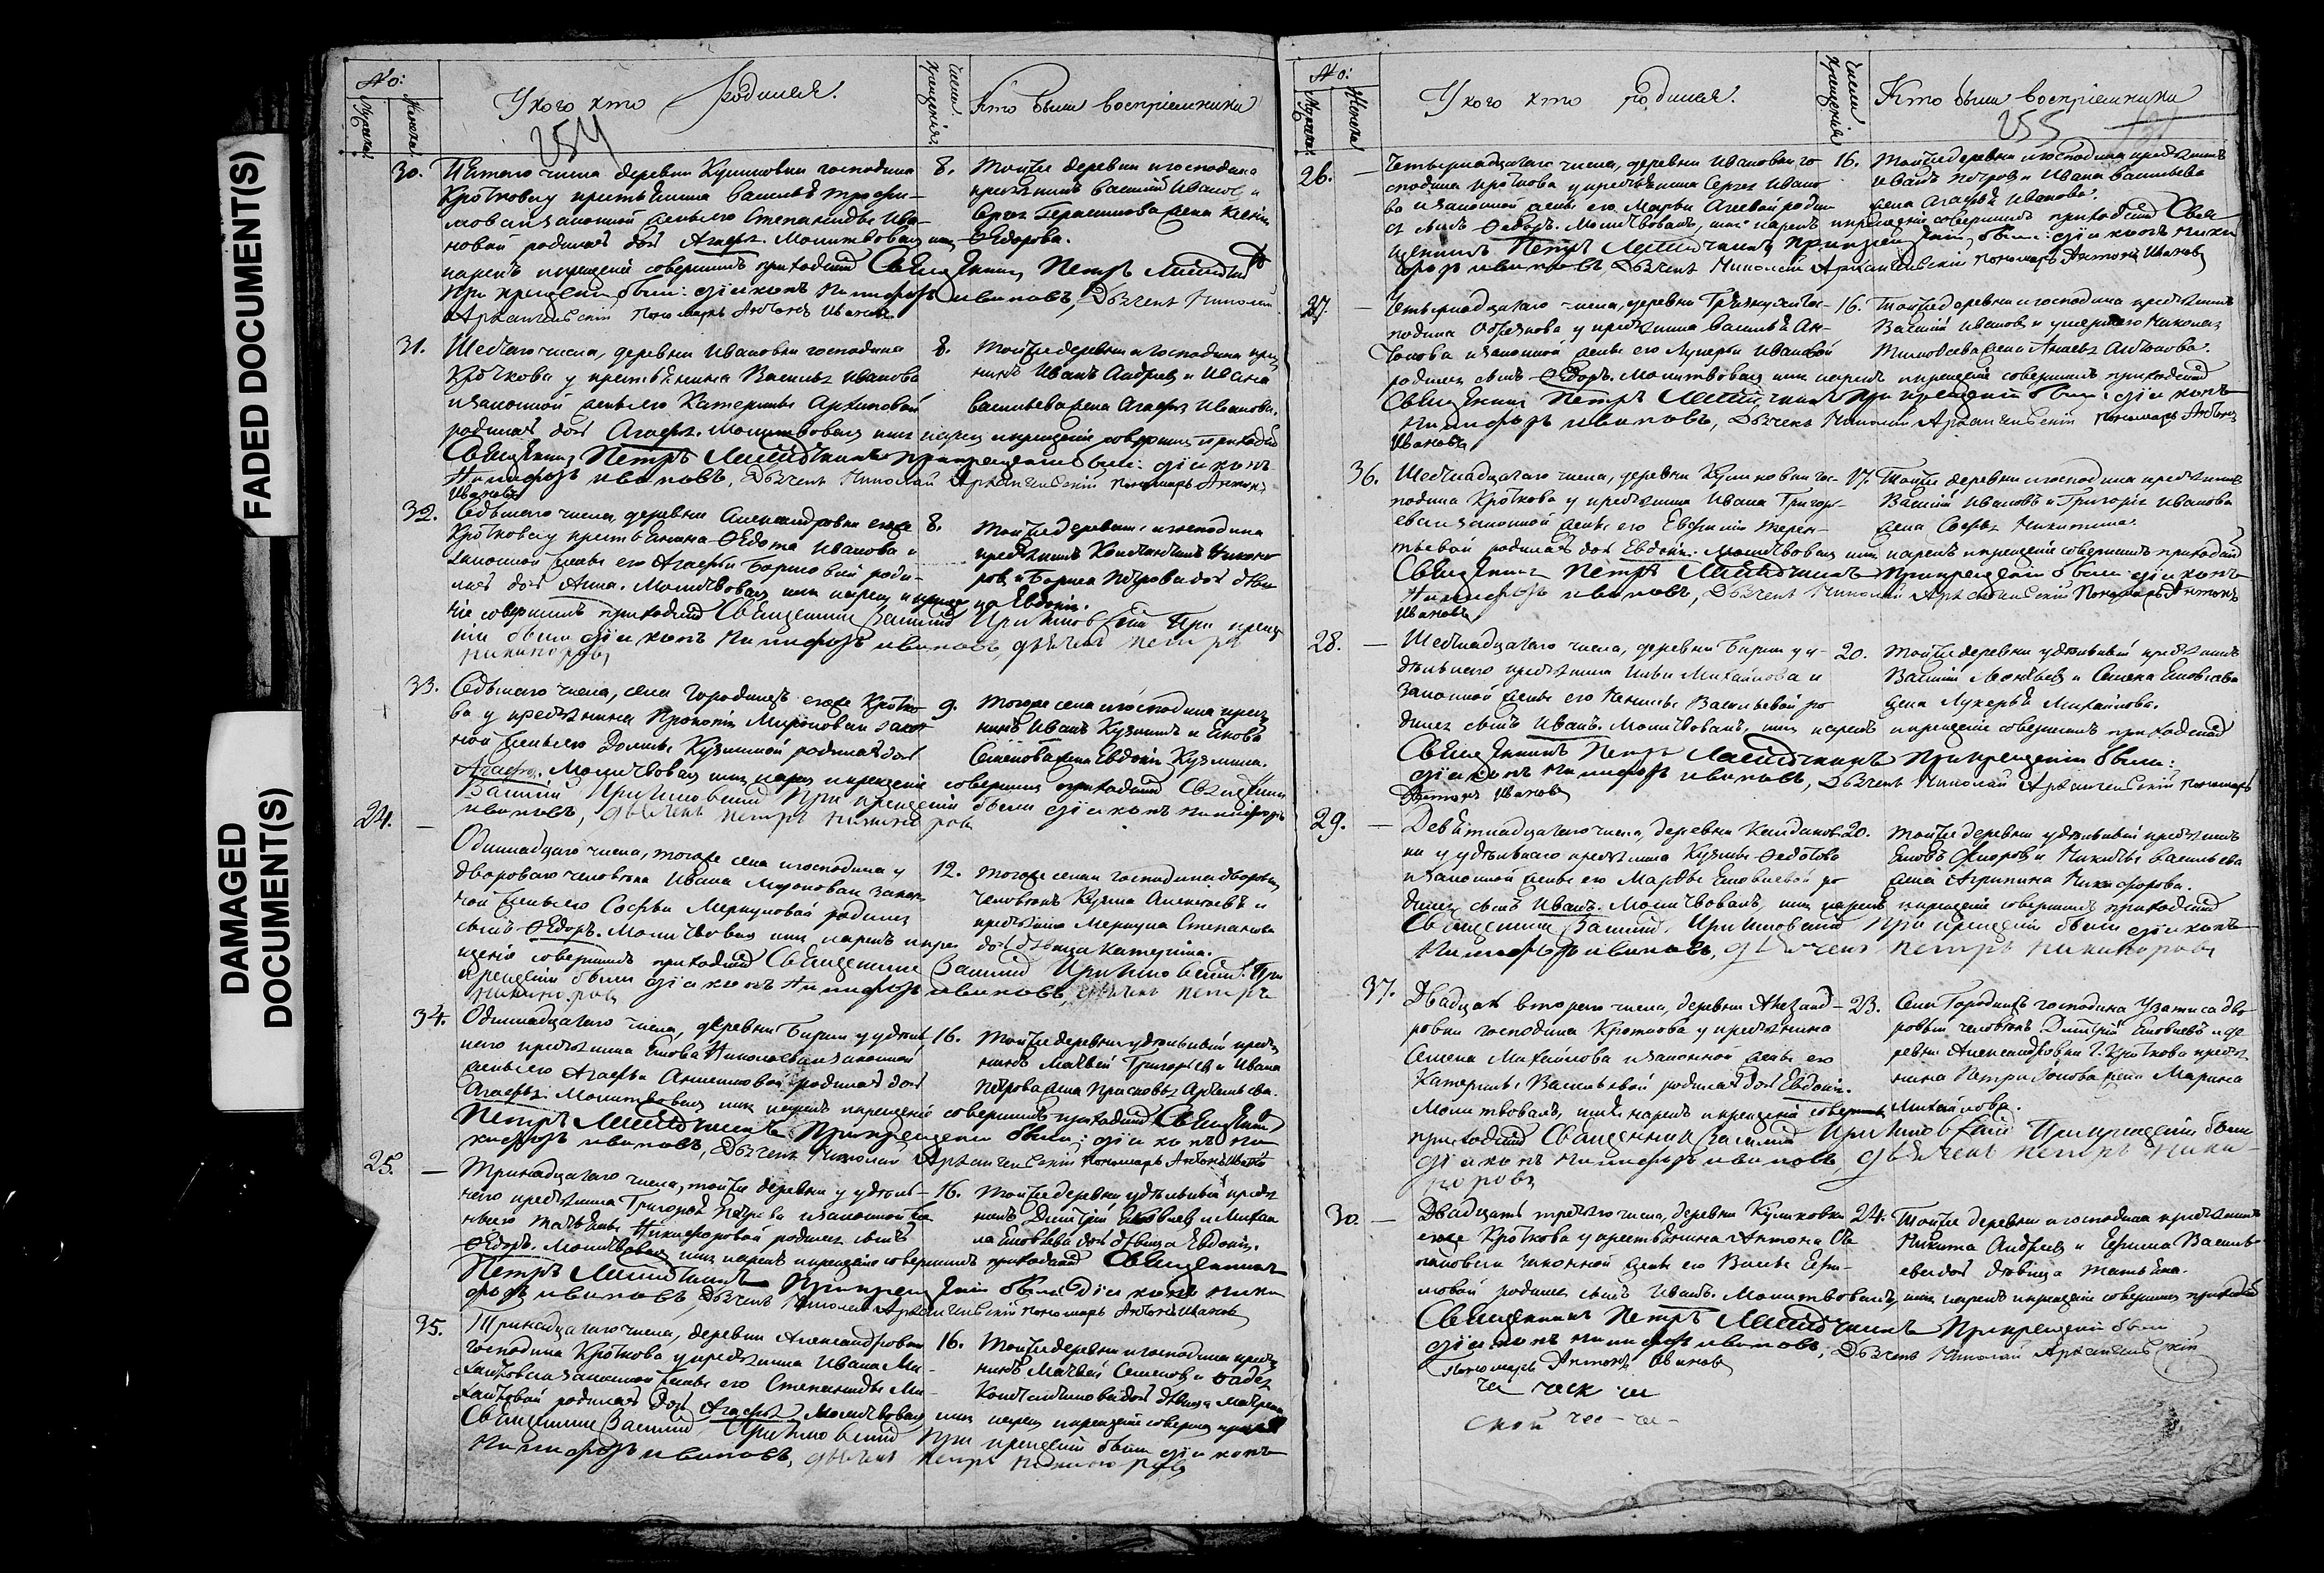 FADED DOCUMENT(S)
DAMAGED
DOCUMENT(S)
No:
Мужеска
Женска
У кого кто родился.
Числа крещенія
Кто были воспріемники
254
30. Пятаго числа деревни Куликовки господина
Кроткова у крестьянина Василья Трофи-
мова и законной жены его Степаниды Ива-
новой родилась дочь Агафья. Молитвовалъ имя
нарекъ и крещеніе совершилъ приходскій Священникъ Петръ
При крещеніи были: діаконъ Никифоръ Ивановъ, Дьячекъ Николай
Архангельскій Пономарь Антонъ Ивановъ
8. Тойже деревни и господина
крестьянинъ Василій Ивановъ и
Сергея Герасимова жена Ксенія
Ѳедорова.
31. Шестаго числа, деревни Ивановки господина
Кроткова у крестьянина Василья Иванова
и законной жены его Катерины Архиповой
родилась дочь Агафья. Молитвовалъ имя нарекъ и крещеніе совершилъ приходскій
Священникъ Петръ При крещеніи были: діаконъ
Никифоръ Ивановъ, Дьячекъ Николай Архангельскій Пономарь Антонъ
Ивановъ
8. Тойже деревни и господина крестья
нинъ Иванъ Андреевъ и Ивана
Васильева жена Агафья Иванова.
32. Седьмаго числа, деревни Александровки егоже
Кроткова у крестьянина Ѳедота Иванова и
законной жены его Агафьи Борисовой роди-
лась дочь Анна. Молитвовалъ имя нарекъ и креще
ніе совершилъ приходскій Священникъ Василій При креще
ніи были діаконъ Никифоръ Ивановъ, дьячекъ Петръ
Никифоровъ
8. Тойже деревни и господина
крестьянинъ Константинъ Никано
ровъ и Бориса Петрова дочь дѣви
ца Евдокія.
33. Седьмаго числа, села Городищъ егоже Кротко
ва у крестьянина Прокопія Миронова и закон
ной жены его Домны Кузминой родилась дочь
Агафья. Молитвовалъ имя нарекъ и крещеніе совершилъ приходскій Священникъ
Василій При крещеніи были діаконъ Никифоръ
Ивановъ, дьячекъ Петръ Никифоровъ
9. Тогоже села и господина крестья
нинъ Иванъ Кузминъ и Якова
Семенова жена Евдокія Кузмина.
24. — Одиннадцаго числа, тогоже села и господина у
двороваго человѣка Ивана Миронова и закон-
ной жены его Софьи Меркуловой родился
сынъ Ѳедоръ. Молитвовалъ имя нарекъ и кре
щеніе совершилъ приходскій Священникъ Василій При
крещеніи были діаконъ Никифоръ Ивановъ, дьячекъ Петръ
Никифоровъ
12. Тогоже села и господина дворовый
человѣкъ Кузма Алексѣевъ и
крестьянина Меркула Степанова
дочь дѣвица Катерина.
34. Одиннадцатаго числа, деревни Бирки у удѣль
наго крестьянина Якова Николаева и законной
жены его Агафьи Анисимовой родилась дочь
Агафья. Молитвовалъ имя нарекъ и крещеніе совершилъ приходскій Священникъ
Петръ При крещеніи были: діаконъ Ни
кифоръ Ивановъ, Дьячекъ Николай Архангельскій Пономарь Антонъ Ивановъ
16. Тойже деревни удѣльный крестья
нинъ Матвей Григорьевъ и Ивана
Петрова жена Прасковья Артемьева.
25. — Тринадцатаго числа, тойже деревни у удѣль-
наго крестьянина Григорья Петрова и законной же
ны его Татьяны Никифоровой родился сынъ
Ѳедоръ. Молитвовалъ имя нарекъ и крещеніе совершилъ приходскій Священникъ
Петръ При крещеніи были Діаконъ Ники
форъ Ивановъ, Дьячекъ Николай Архангельскій Пономарь Антонъ Ивановъ
16. Тойже деревни удѣльный крестья
нинъ Дмитрій Яковлевъ и Михаи
ла Яковлева дочь дѣвица Евдокія.
35. Тринадцатаго числа, деревни Александровки
господина Кроткова у крестьянина Ивана Ми-
хайлова и законной жены его Степаниды Ми-
хайловой родилась дочь Агафья. Молитвовалъ имя нарекъ и крещеніе совершилъ приходскій
Священникъ Василій При крещеніи были діаконъ
Никифоръ Ивановъ, дьячекъ Петръ Никифоровъ
16. Тойже деревни и господина крестья
нинъ Матвей Семеновъ и
Константинова дочь дѣвица Матрена
No:
Мужеска
Женска
У кого кто родился.
Числа крещенія
Кто были воспріемники
255
26. — Четырнадцатаго числа, деревни Ивановки го-
сподина Кроткова у крестьянина Сергея Ивано
ва и законной жены его Марьи Агеевой родил
ся сынъ Ѳедоръ. Молитвовалъ, имя нарекъ и крещеніе совершилъ приходскій Свя
щенникъ Петръ При крещеніи были: діаконъ Ники
форъ Ивановъ, Дьячекъ Николай Архангельскій Пономарь Антонъ Ивановъ
16. Тойже деревни и господина крестьянинъ
Иванъ Петровъ и Ивана Васильева
жена Агафья Иванова.
27. — Четырнадцатаго числа, деревни Грязнухи гос-
подина Обрезкова у крестьянина Василья Ан-
тонова и законной жены его Лукерьи Ивановой
родился сынъ Ѳедоръ. Молитвовалъ имя нарекъ и крещеніе совершилъ приходскій
Священникъ Петръ При крещеніи были: діаконъ
Никифоръ Ивановъ, Дьячекъ Николай Архангельскій Пономарь Антонъ
Ивановъ
16. Тойже деревни и господина крестьянинъ
Василій Ивановъ и умершаго Николая
Тимофеева жена Анисья Антонова.
36. Шестнадцатаго числа, деревни Куликовки гос-
подина Кроткова у крестьянина Ивана Григорь-
ева и законной жены его Евфиміи Терен-
тьевой родилась дочь Евдокія. Молитвовалъ имя нарекъ и крещеніе совершилъ приходскій
Священникъ Петръ При крещеніи были діаконъ
Никифоръ Ивановъ, Дьячекъ Николай Архангельскій Пономарь Антонъ
Ивановъ
17. Тойже деревни и господина крестьянинъ
Василій Ивановъ и Григорья Иванова
жена Софья Никитина.
28. — Шестнадцатаго числа, деревни Бирки у у-
дѣльнаго крестьянина Ильи Михайлова и
законной жены его Ксеніи Васильевой ро
дился сынъ Иванъ. Молитвовалъ, имя нарекъ и крещеніе совершилъ приходскій
Священникъ Петръ При крещеніи были:
діаконъ Никифоръ Ивановъ, Дьячекъ Николай Архангельскій Пономарь
Антонъ Ивановъ
20. Тойже деревни удѣльный крестьянинъ
Василій Леонтьевъ и Семена Яковлева
жена Лукерья Михайлова.
29. — Девятнадцатаго числа, деревни
ки у удѣльнаго крестьянина Кузмы Ѳедотова
и законной жены его Марѳы Яковлевой ро
дился сынъ Иванъ. Молитвовалъ, имя нарекъ и крещеніе совершилъ приходскій
Священникъ Василій При крещеніи были діаконъ
Никифоръ Ивановъ, дьячекъ Петръ Никифоровъ
20. Тойже деревни удѣльный крестьянинъ
Яковъ Флоровъ и Никиты Васильева
жена Агрипина Никифорова.
37. Двадцать втораго числа, деревни Александ-
ровки господина Кроткова у крестьянина
Семена Михайлова и законной жены его
Катерины Васильевой родилась дочь Евдокія.
Молитвовалъ, имя нарекъ и крещеніе совершилъ
приходскій Священникъ Василій При крещеніи были
діаконъ Никифоръ Ивановъ, дьячекъ Петръ Ники-
форовъ
23. Села Городищъ господина дво
ровый человѣкъ Дмитрій Яковлевъ и де
ревни Александровки г. Кроткова крестья
нина Петра жена Марина
Михайлова.
30. — Двадцать третьяго числа, деревни Куликовки
егоже Кроткова у крестьянина Антона Сте
панова и законной жены его Ефи-
мовой родился сынъ Иванъ. Молитвовалъ, имя нарекъ и крещеніе совершилъ приходскій
Священникъ Петръ При крещеніи были
діаконъ Никифоръ Ивановъ, Дьячекъ Николай Архангельскій
Пономарь Антонъ Ивановъ
24. Тойже деревни и господина крестьянинъ
Никита Андреевъ и Ефима Василь-
ева дочь дѣвица Татьяна.